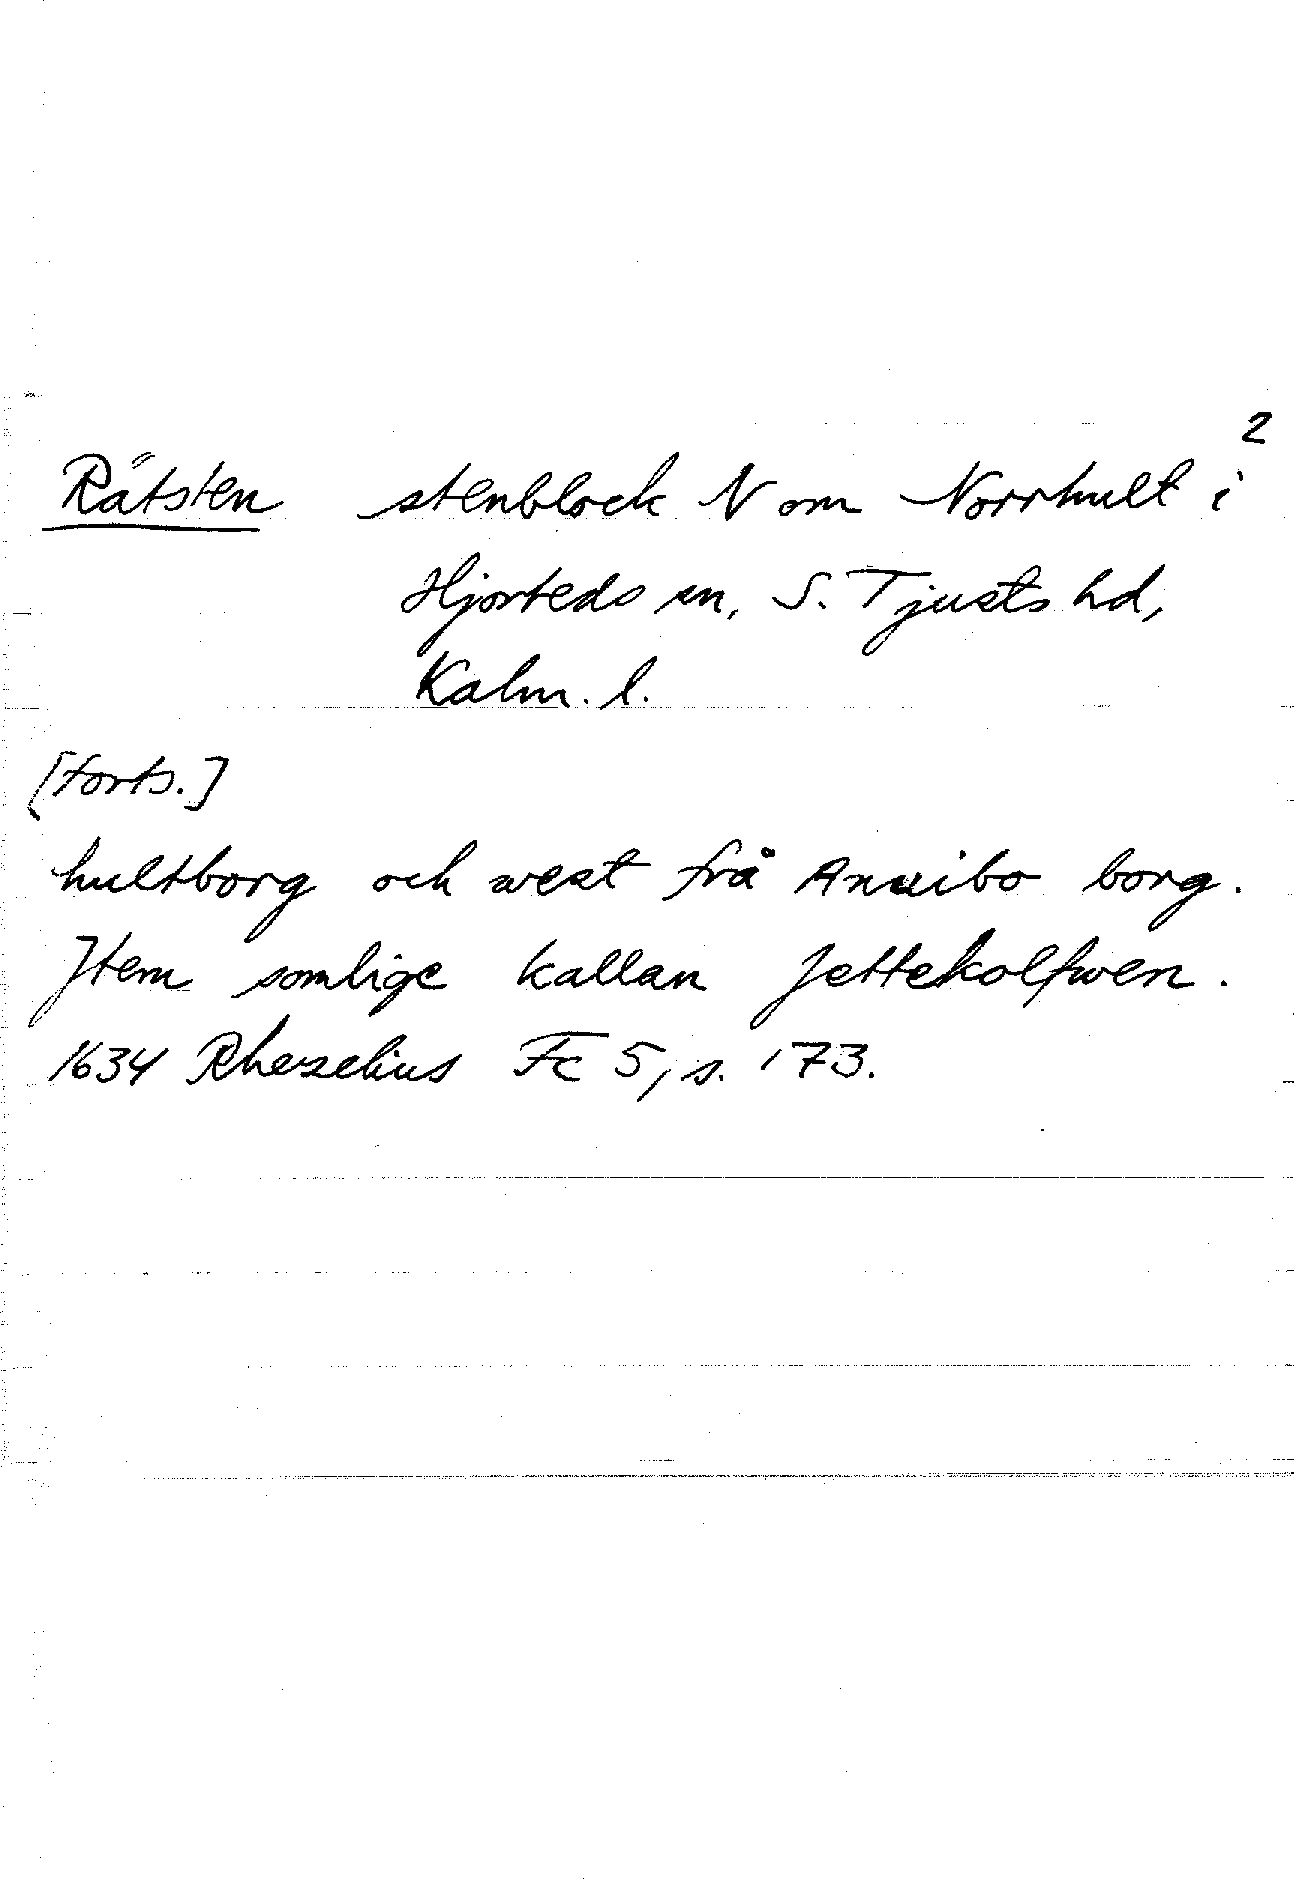 2
Rätsten stenblock N om Norrhult i
Hjorteds sn, S. Tjusts hd,
Kalm. l.
[forts.]
hultborg och west frå Annibo borg.
Jtem somlige kallan Jettekolfwen.
1634 Rhezelius Fc 5, s. 173.